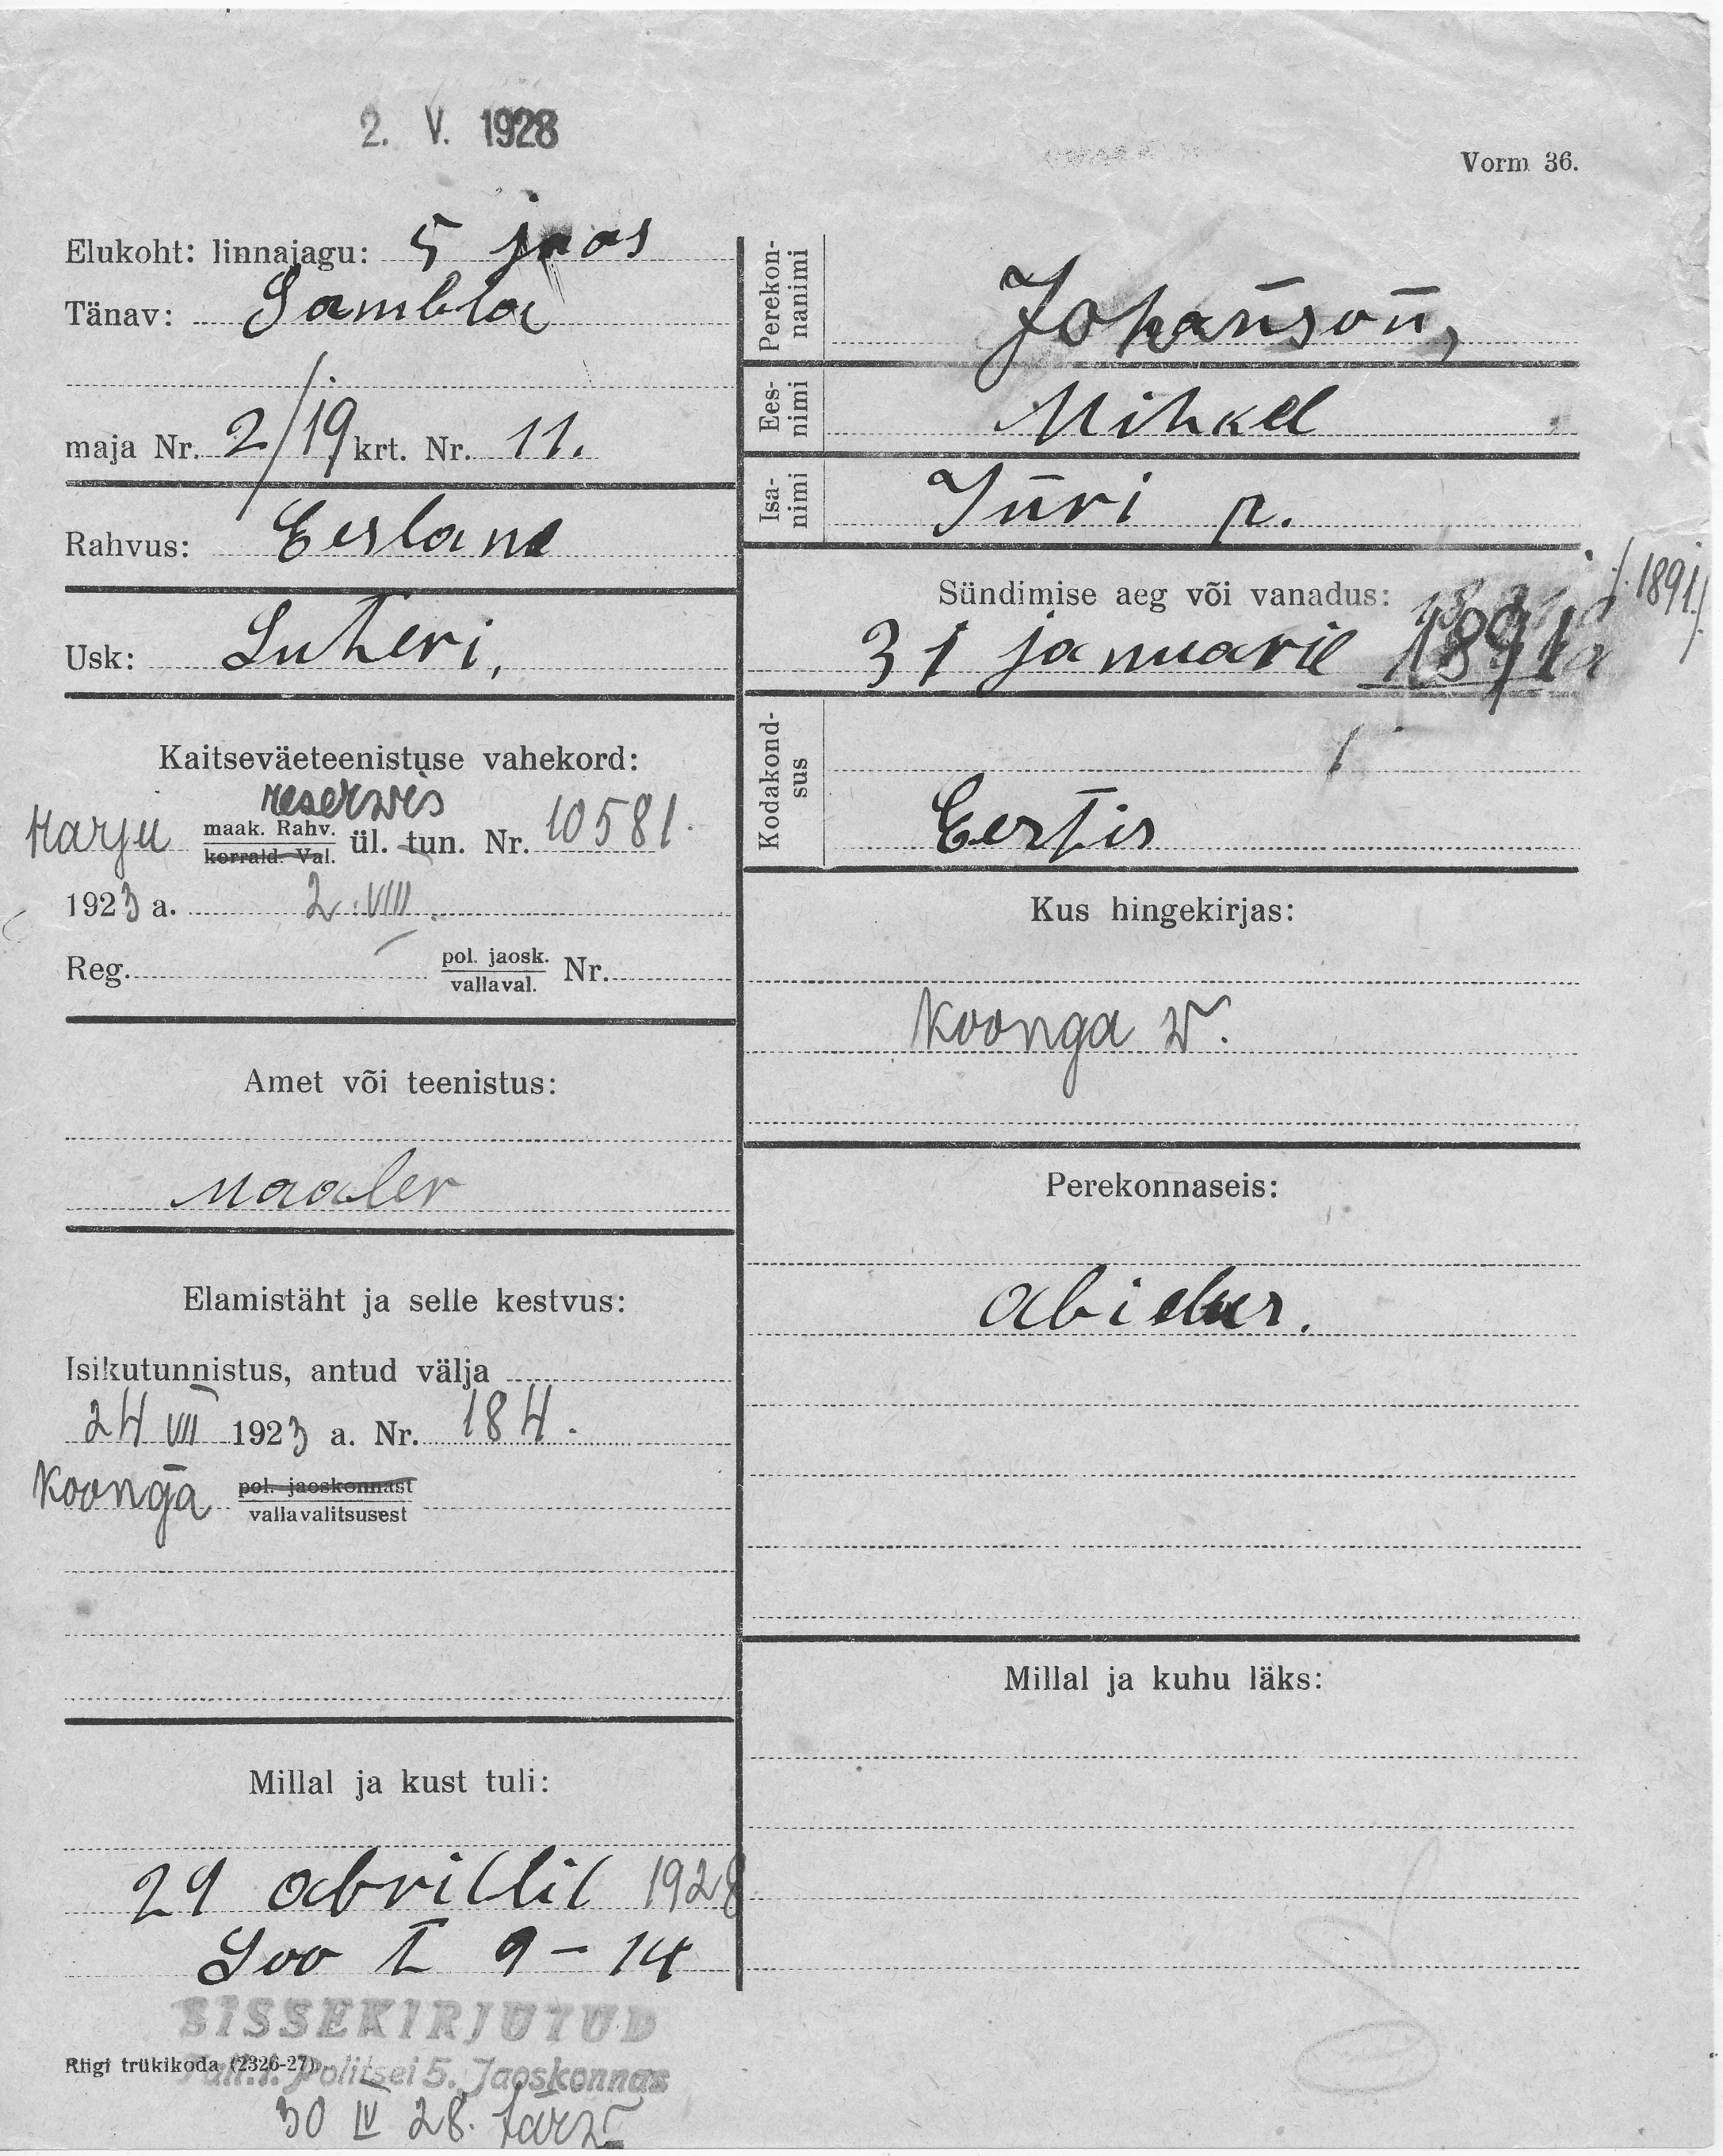 2. V. 1928
Vorm 36.
Elukoht: linnajagu: 5 jaos
Tänav: Sambla
maja Nr. 2/19 krt. Nr. 11.
Rahvus: Eeslane
Usk: Luteri,
Kaitseväeteenistuse vahekord:
reservis
Harju maak. Rahv. ül. tun. Nr. 10581.
korrald. Val.
1923 a. 2. VIII.
Reg. pol. jaosk. Nr.
vallaval.
Amet või teenistus:
Maaler
Elamistäht ja selle kestvus:
Isikutunnistus, antud välja
24 VIII 1923 a. Nr. 184.
Koonga pol. jaoskonnast
vallavalitsusest
Millal ja kust tuli:
29 abrillil 1928
Soo I 9-14
SISSEKIRJUTUD
Tall. Politsei 5. Jaoskonnas
Riigi trükikoda (2326-27)
30 IV 28.
Perekon-
nanimi
Johanson,
Ees-
nimi
Mihkel
Isa-
nimi
Jüri p.
Sündimise aeg või vanadus:
/.1891./
31 januaril 1891 a
Kodakond-
sus
Eestis
Kus hingekirjas:
Koonga v.
Perekonnaseis:
abielus.
Millal ja kuhu läks: